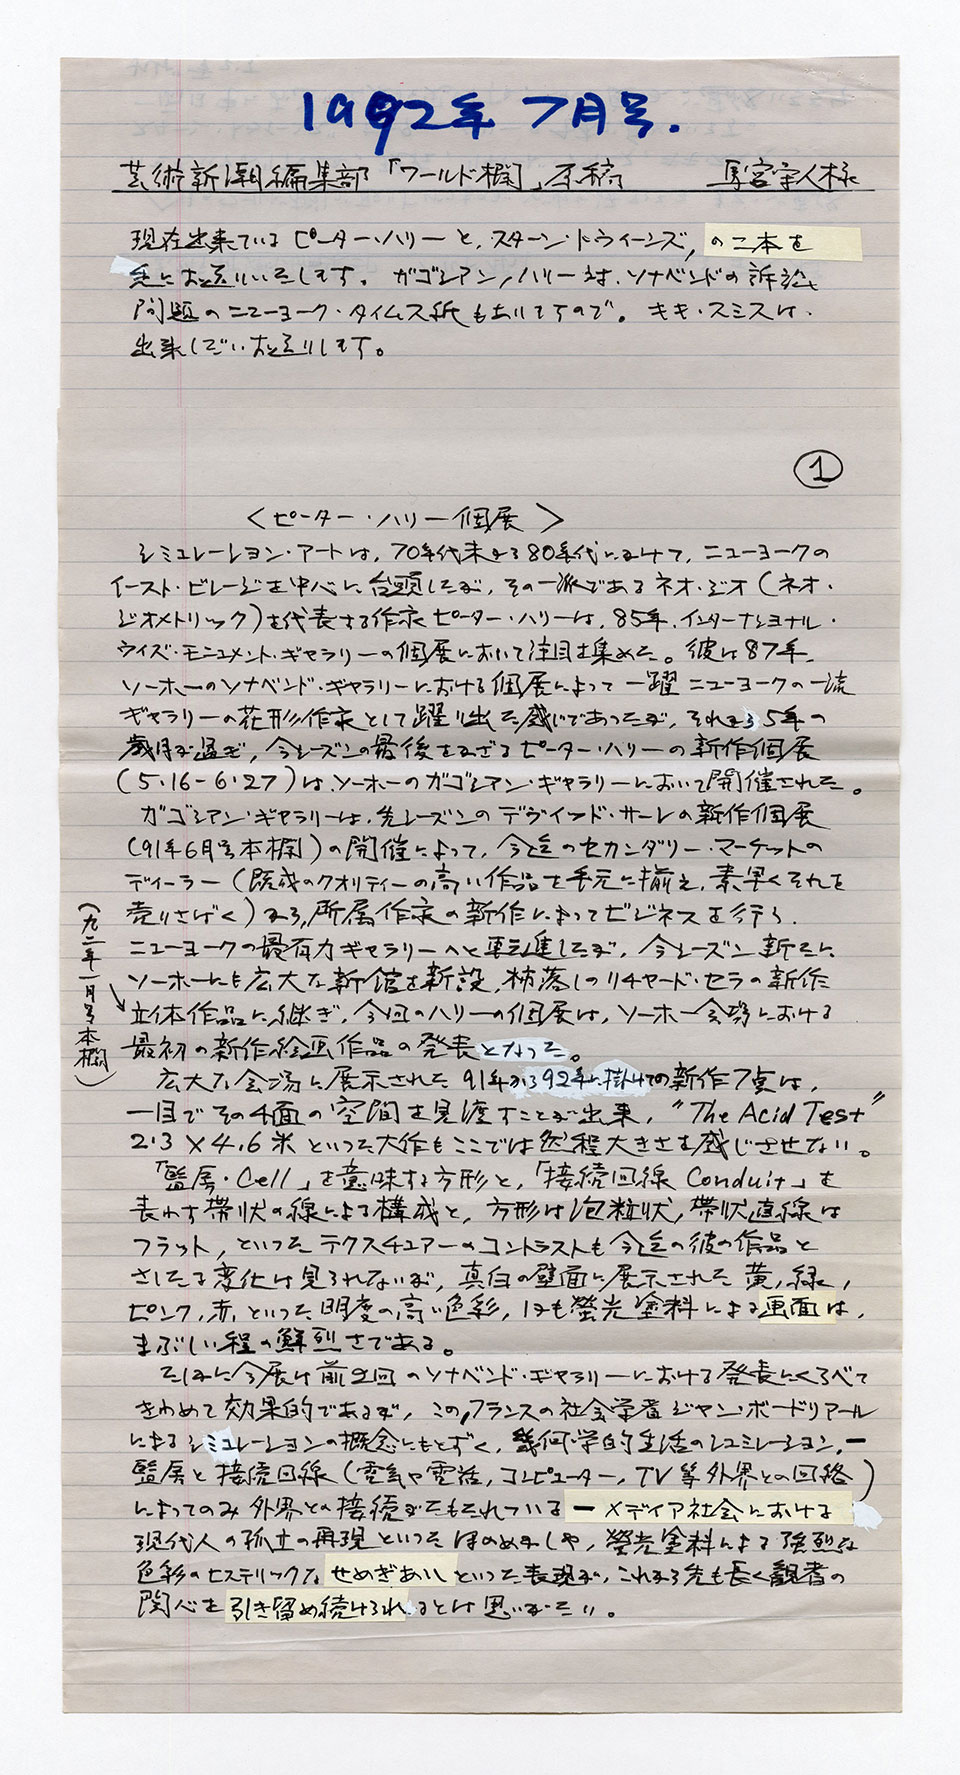 1992年 7月号.
芸術新潮編集部「ワールド欄」原稿
現在出来ている ピーター・ハリーと、スターン・トウィーンズ、の二本を
先にお送りいたします。 ガゴシアン/ハリー対、ソナベンドの訴訟
問題のニューヨーク・タイムス紙もあいますので。 キキ・スミスは、
出来しだいお送りします。
①
〈ピーター・ハリー個展〉
シミュレーション・アートは、70年代末から80年代にかけて、ニューヨークの
イースト・ビレージを中心に台頭したが、その一派であるネオ・ジオ(ネオ・
ジオメトリック)を代表する作家ピーター・ハリーは、85年、インターナショナル・
ウィズ・モニュメント・ギャラリーの個展において注目を集めた。彼は87年、
ソーホーのソナベンド・ギャラリーにおける個展によって一躍ニューヨークの一流
ギャラリーの花形作家として躍り出た感じであったが、それから5年の
歳月が過ぎ、今シーズンの最後をかざるピーター・ハリーの新作個展
(5・16-6・27)は、ソーホーのガゴシアン・ギャラリーにおいて開催された。
ガゴシアン・ギャラリーは、先シーズンのデヴィッド・サーレの新作個展
(91年6月号本欄)の開催によって、今迄のセカンダリー・マーケットの
ディーラー(既成のクオリティーの高い作品を手元に揃え、素早くそれを
売りさばく)から、所属作家の新作によってビジネスを行う、
ニューヨークの最有力ギャラリーへと転進したが、今シーズン新たに
ソーホーにも広大な新館を新設、柿落しのリチャード・セラの新作
(九二年一月号本欄)
立体作品に継ぎ、今回のハリーの個展は、ソーホー会場における
最初の新作絵画作品の発表となった。
広大な会場に展示された 91年から92年に掛けての新作7点は、
一目でその4面の空間を見渡すことが出来、"The Acid Test"
2.3×4.6米といった大作もここでは然程大きさを感じさせない。
「監房・Cell」を意味する方形と、「接続回線 Conduit」を
表わす帯状の線による構成と、方形は泡粒状、帯状直線は
フラット、といったテクスチュアーのコントラストも今迄の彼の作品と
さしたる変化は見られないが、真白の壁面に展示された黄、緑、
ピンク、赤、といった明度の高い色彩、ほも螢光塗料による画面は、
まぶしい程の鮮烈さである。
たしかに今展は前回のソナベンド・ギャラリーにおける発表にくらべて
きわめて効果的であるが、この、フランスの社会学者ジャン・ボードリアール
によるシミュレーションの概念にもとずく、幾何学的生活のシュミレーション、一
監房と接続回線(電気や電話、コンピューター、TV等外界との回路)
によってのみ外界との接続がたもたれている一メディア社会における
現代人の孤立の再現といったほのめかしや、螢光塗料による強烈な
色彩のヒステリックなせめぎあいといった表現が、これから先も長く観者の
関心を引き留め続けられるとは思いがたい。